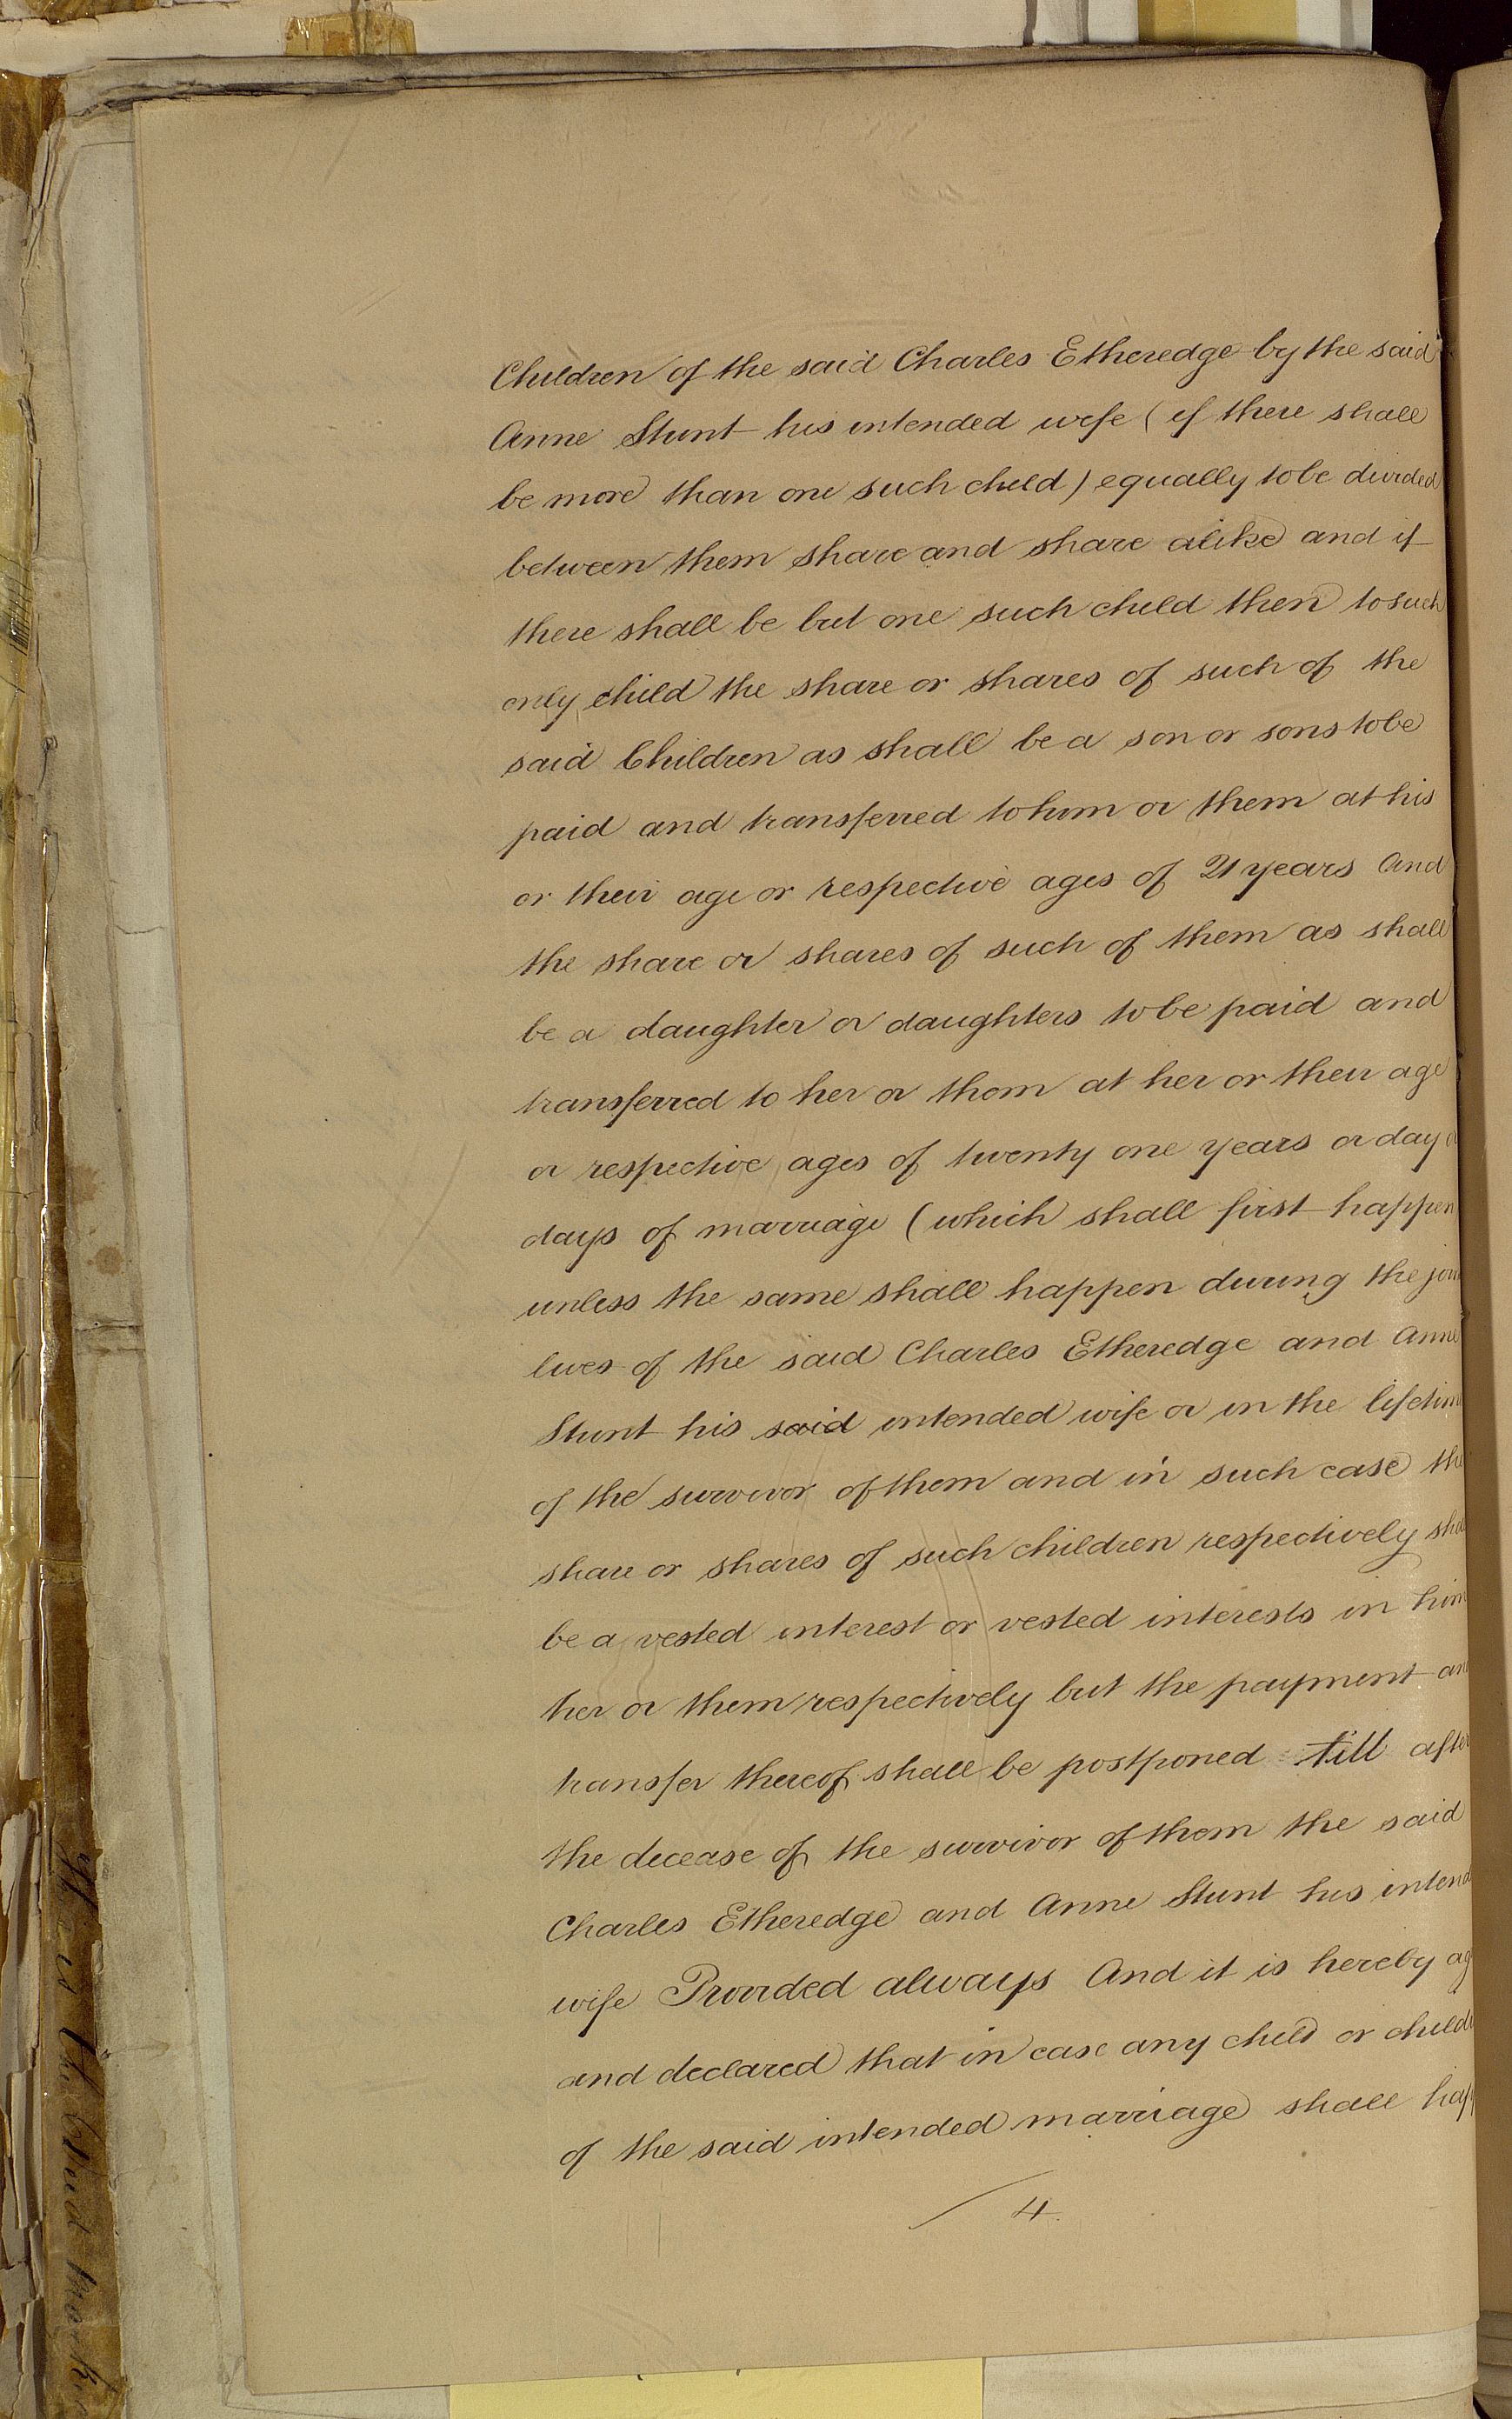 Children of the said Charles Etheredge by the said
Anne Stunt his intended wife (if there shall
be more than one such child) equally to be divided
between them share and share alike and if
there shall be but one such child then to such
only child the share or shares of such of the
said Children as shall be a son or sons to be
paid and transferred to him or them at his
or their age or respective ages of 21 years And
the share or shares of such of them as shall
be a daughter or daughters to be paid and
transferred to her or them at her or their age
or respective ages of twenty one years or day o
days of marriage (which shall first happen
unless the same shall happen during the join
lives of the said Charles Etheredge and Anne
Stunt his said intended wife or in the lifetim
of the survivor of them and in such case the
share or shares of such children respectively sha
be a vested interest or vested interests in him
her or them respectively but the payment an
transfer thereof shall be postponed till after
the decease of the survivor of them the said
Charles Etheredge and Anne Stunt his intend
wife Provided always And it is hereby ag
and declared that in case any child or childr
of the said intended marriage shall hap
4